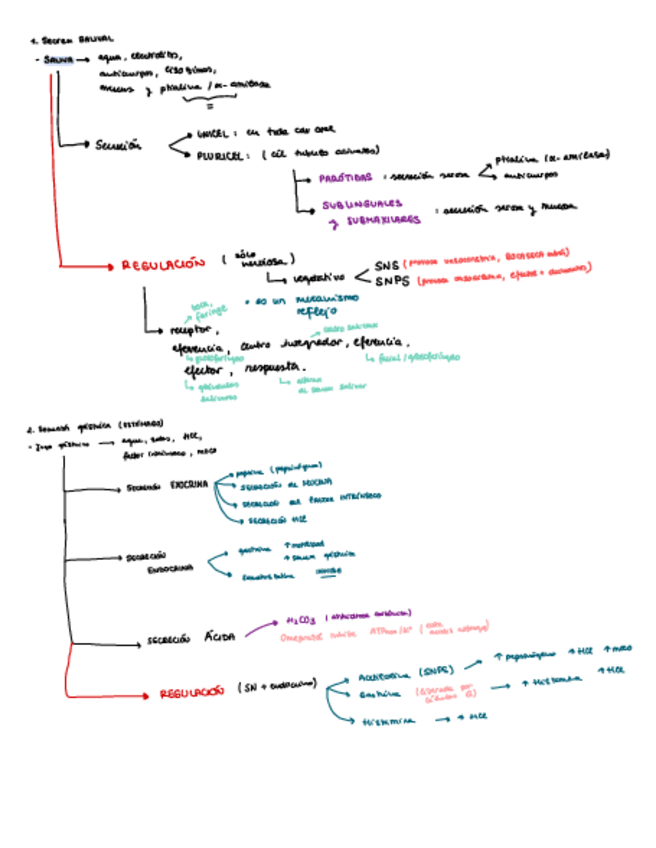 1. Secreción SALIVAL
- SALIVA → agua, electrolitos,
anticuerpos, lisozimas,
mucus y ptialina / α-amilasa
Secreción
UNICEL: en toda cav oral
PLURICEL: ( cél túbulo acinares)
PARÓTIDAS : secreción serosa
ptialina (α-amilasa)
anticuerpos
SUBLINGUALES
y SUBMAXILARES : secreción serosa y mucosa
REGULACIÓN ( sólo
nerviosa )
vegetativo
SNS
SNPS
• es un mecanismo
reflejo
boca,
faringe
receptor,
centro salivar
aferencia, centro integrador, eferencia,
glosofaríngeo
facial / glosofaríngeo
efector, respuesta.
glándulas
salivares
2. Secreción gástrica (ESTÓMAGO)
- Jugo gástrico → agua, sales, HCl,
factor intrínseco, moco
SECRECIÓN EXOCRINA
pepsina (pepsinógeno)
SECRECIÓN de MUCINA
SECRECIÓN del FACTOR INTRÍNSECO
SECRECIÓN HCl
SECRECIÓN
ENDOCRINA
gastrina ↑ motilidad
somatostatina inhibe
SECRECIÓN ÁCIDA
H₂CO₃ (anhidrasa carbónica)
Omeprazol inhibe ATPasa/H⁺
REGULACIÓN (SN + endocrino)
Acetilcolina (SNPS) → ↑ pepsinógeno ↑ HCl ↑ moco
Gastrina (liberada por
células G) → ↑ Histamina ↑ HCl
Histamina → ↑ HCl